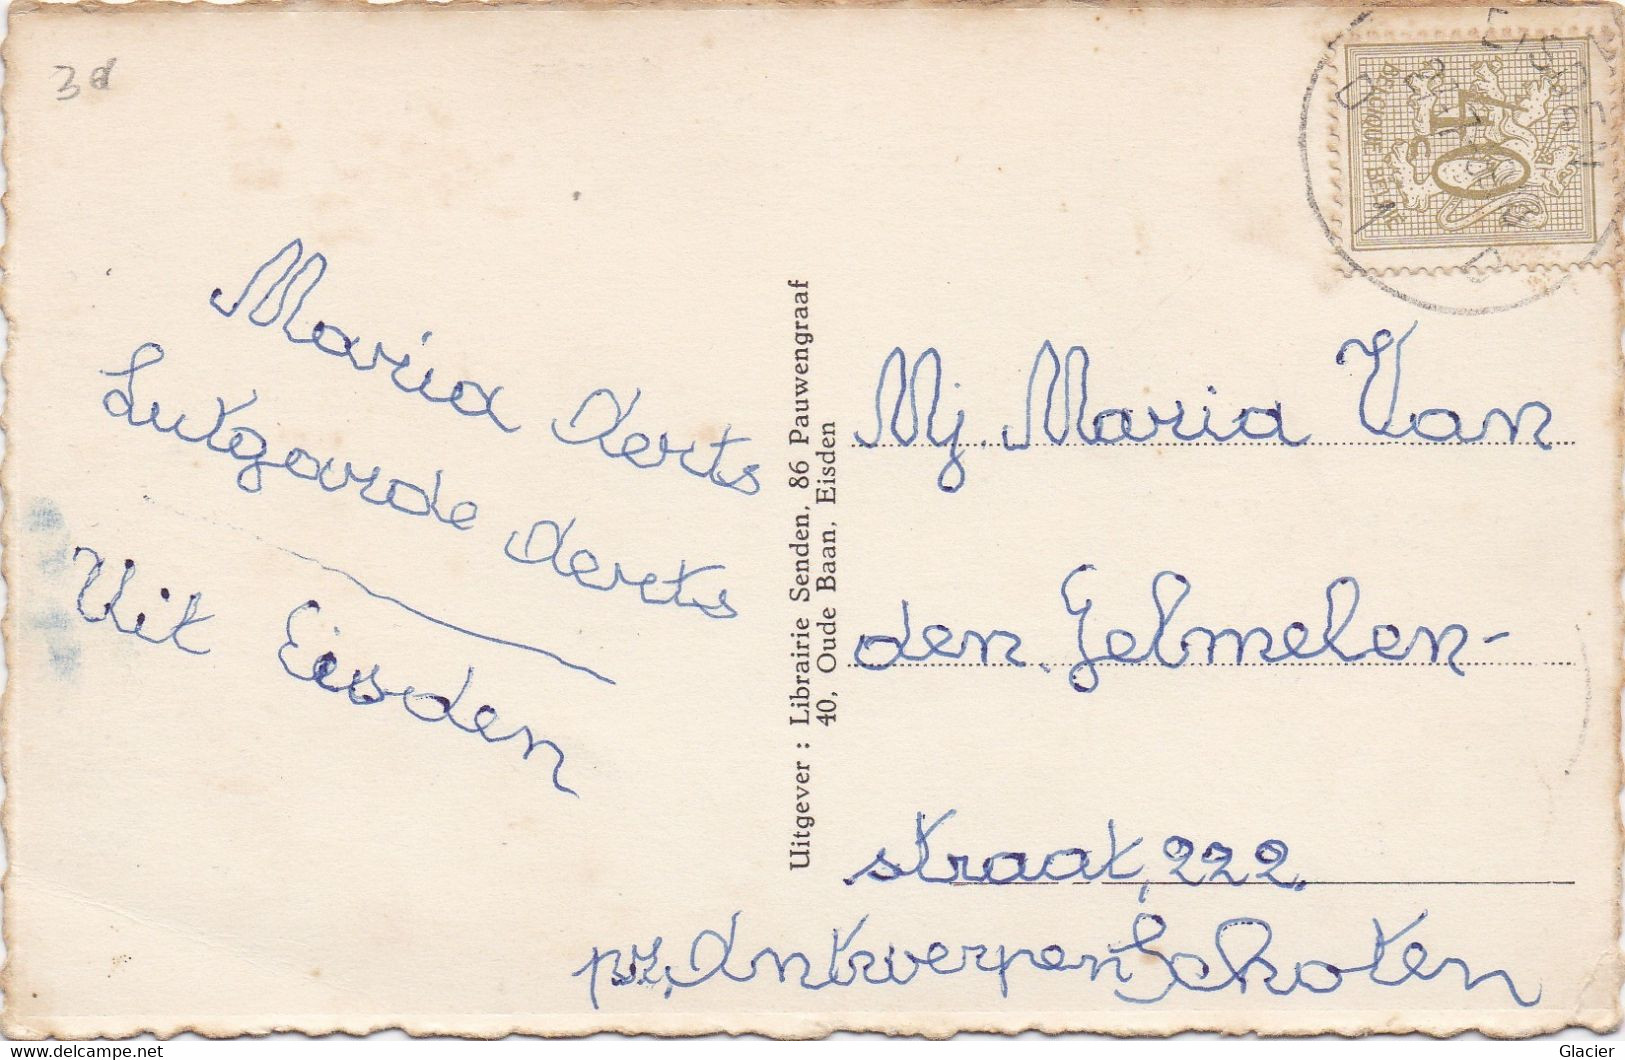 3d
Maria Aerts
Lutgarde Aerts
Uit Eisden
Uitgever : Librairie Senden, 86 Pauwengraaf
40, Oude Baan, Eisden
BELGIQUE BELGIE
40c
EISDEN
Mj. Maria Van
den Gelmelen-
straat, 222.
pr. Antwerpen Schoten
© Glacier
www.delcampe.net